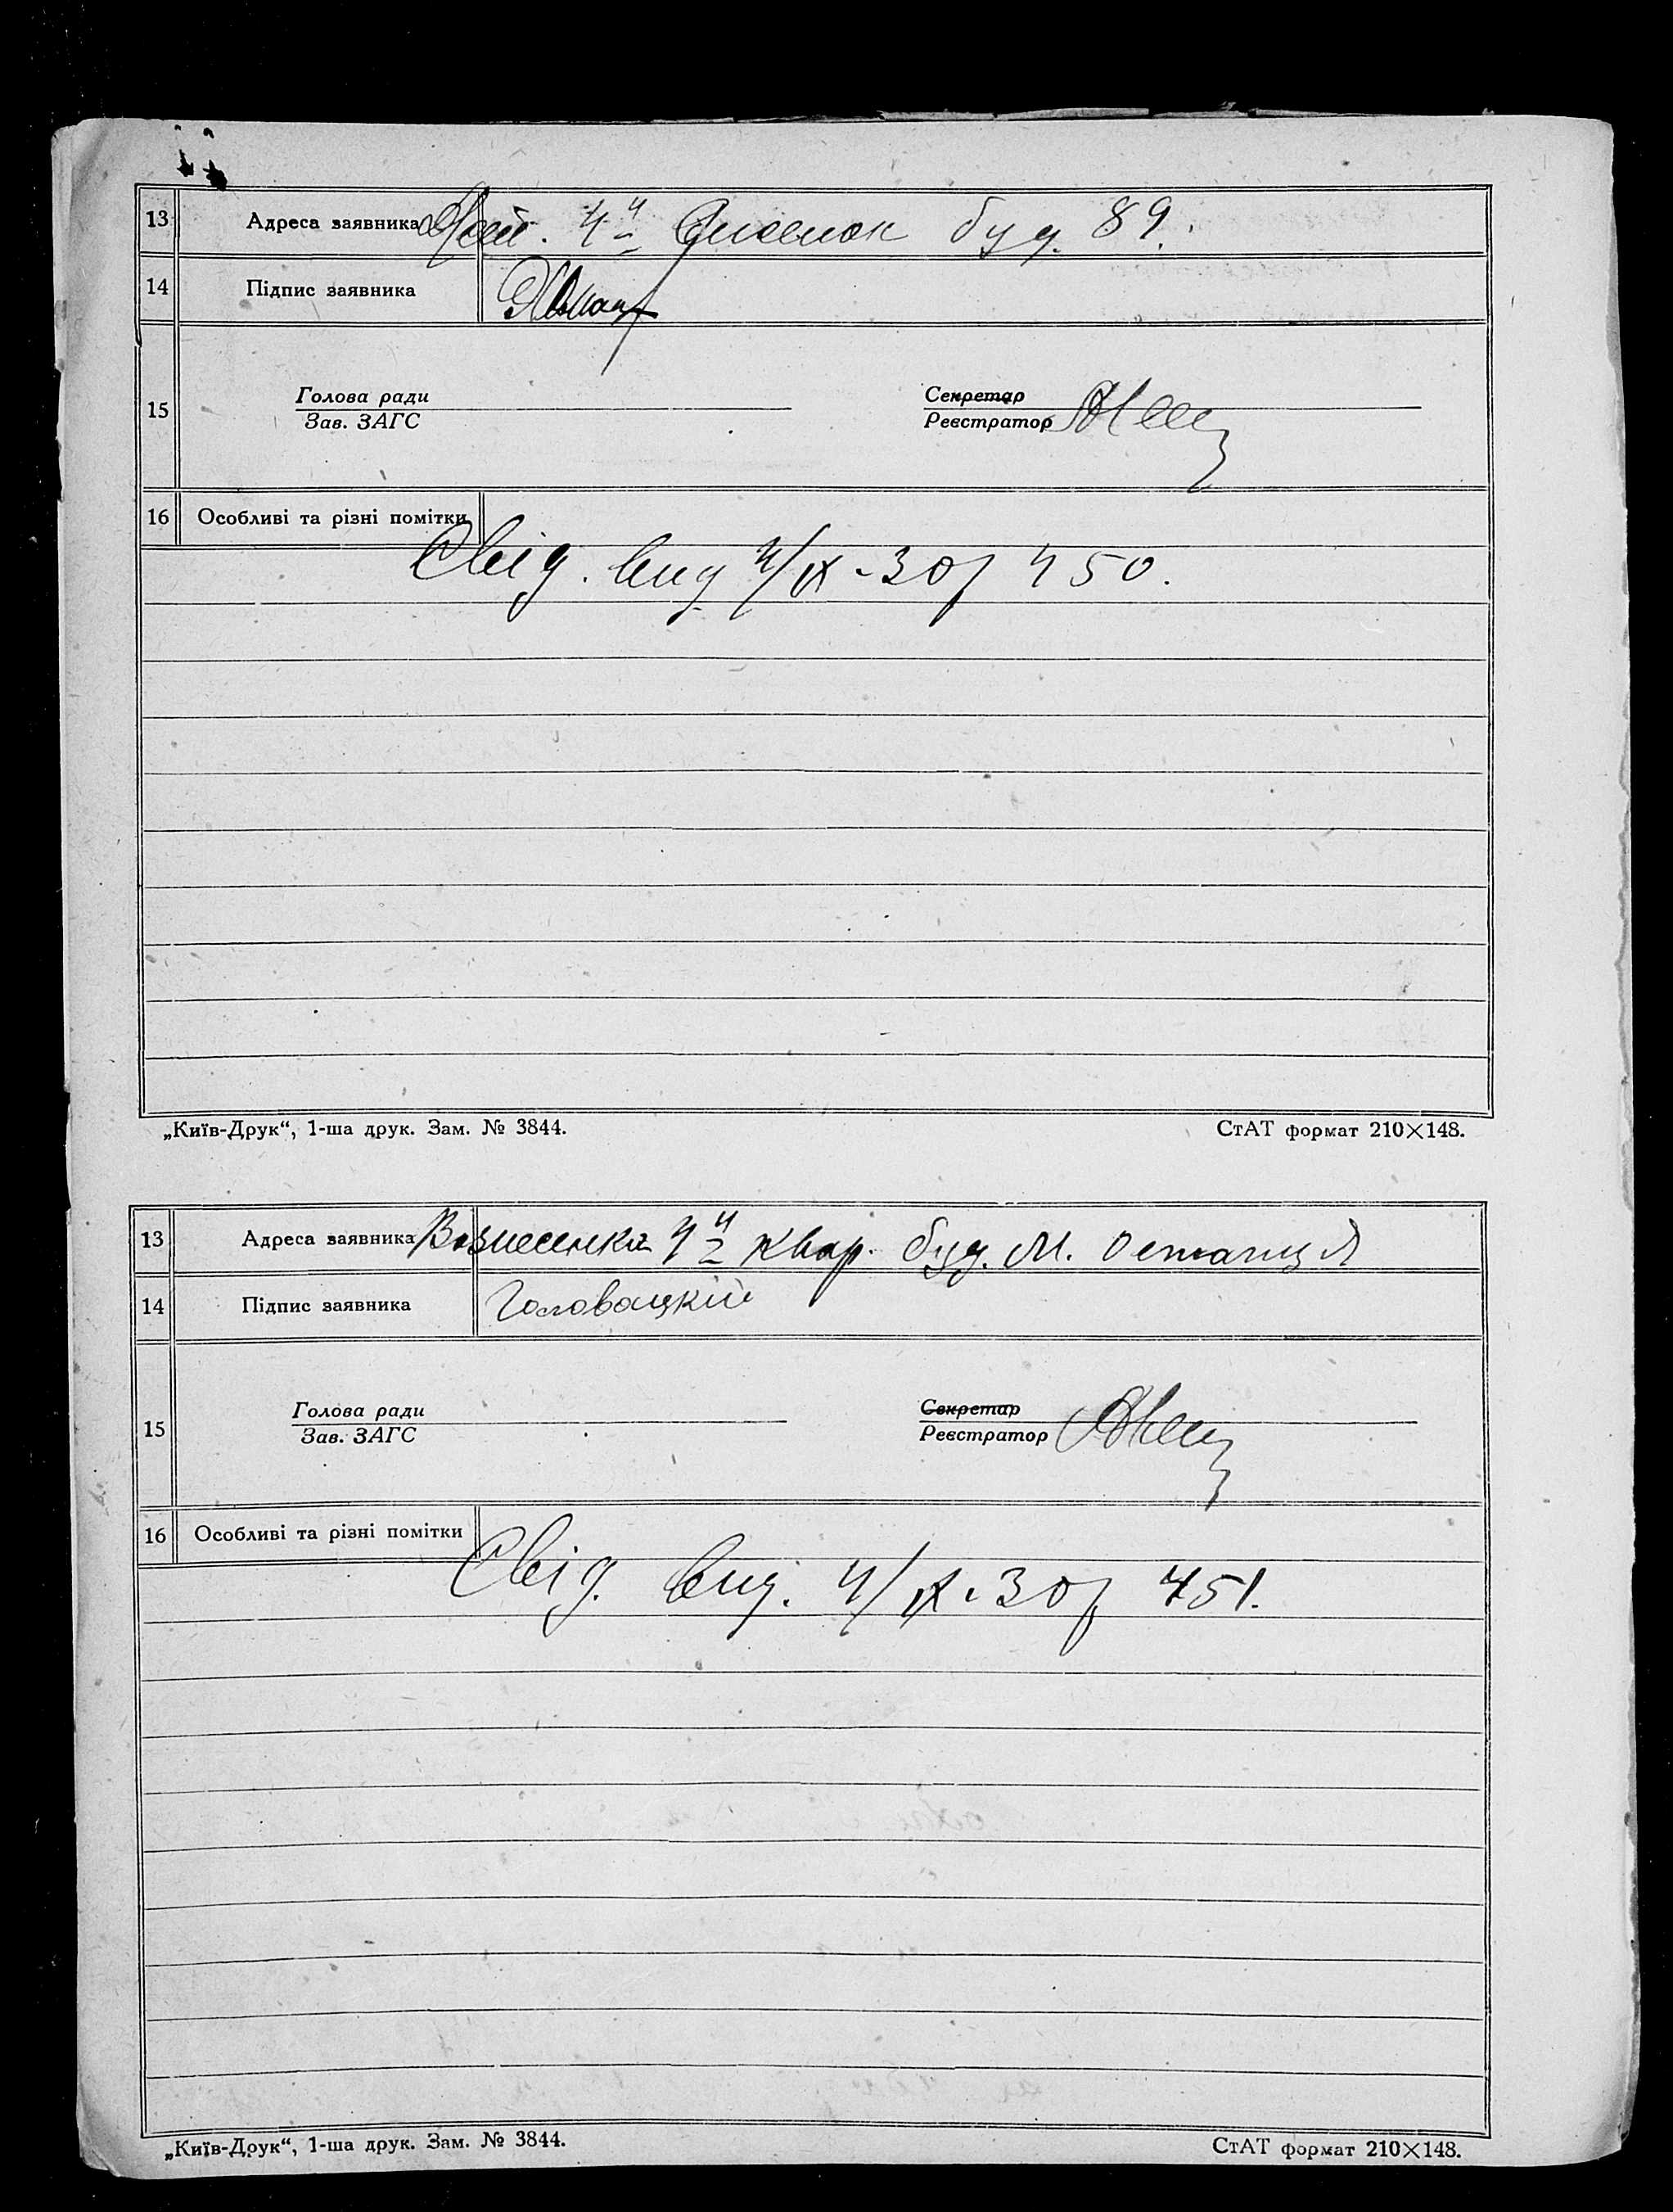 13 Адреса заявника 4й буд. 89.
14 Підпис заявника
15 Голова ради Секретар
Зав. ЗАГС Реєстратор
16 Особливі та різні помітки
Свід. вид 4/ІХ-30р 450.
„Київ-Друк“, 1-ша друк. Зам. № 3844. СтАТ формат 210×148.
13 Адреса заявника Вознесенка квар. буд. М. Остапця
14 Підпис заявника Головацкій
15 Голова ради Секретар
Зав. ЗАГС Реєстратор
16 Особливі та різні помітки
Свід. вид. 4/ІХ-30р 451.
„Київ-Друк“, 1-ша друк. Зам. № 3844. СтАТ формат 210×148.